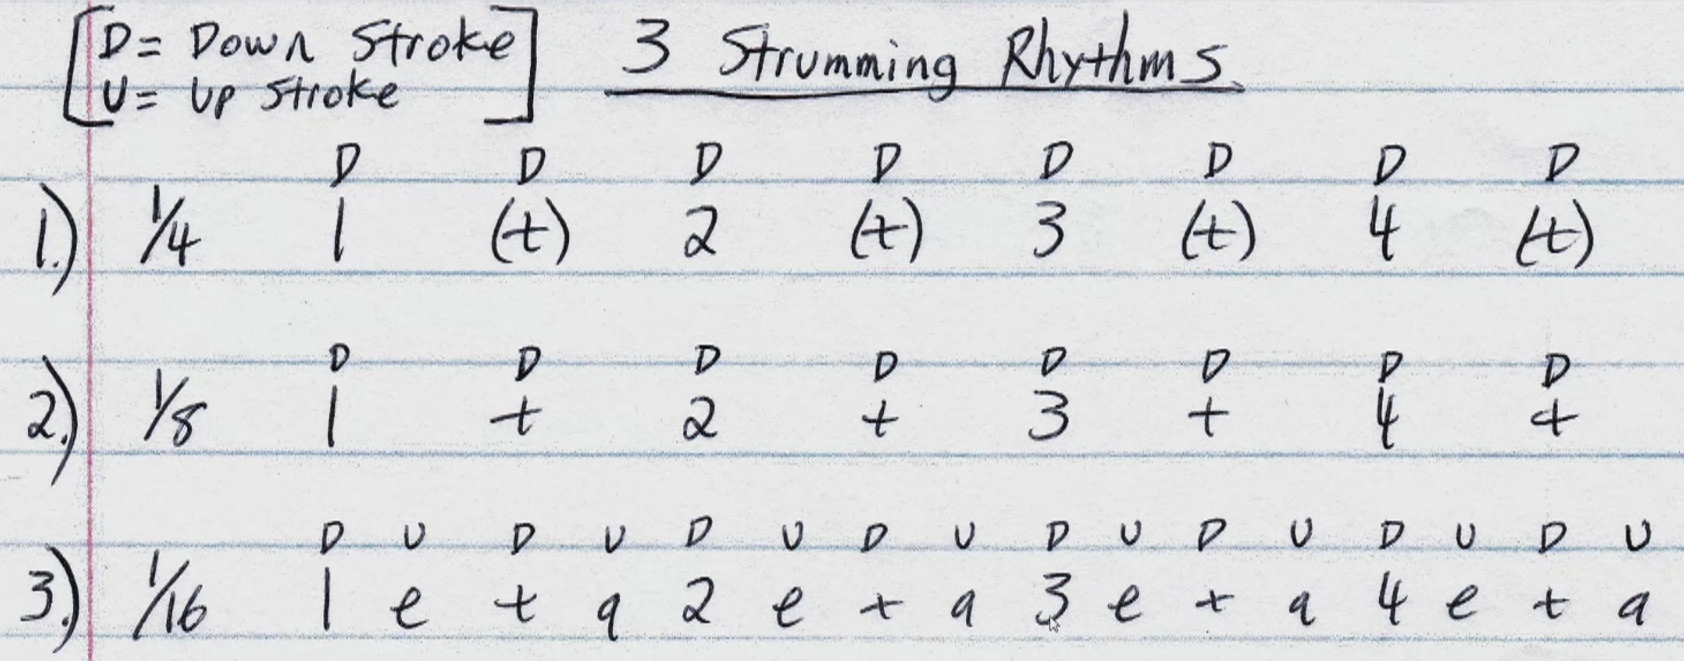 [D = Down Stroke
U = Up Stroke]
3 Strumming Rhythms
D D D D D D D D
1.) 1/4 1 (+) 2 (+) 3 (+) 4 (+)
D D D D D D D D
2.) 1/8 1 + 2 + 3 + 4 +
D U D U D U D U D U D U D U D U
3.) 1/16 1 e + a 2 e + a 3 e + a 4 e + a